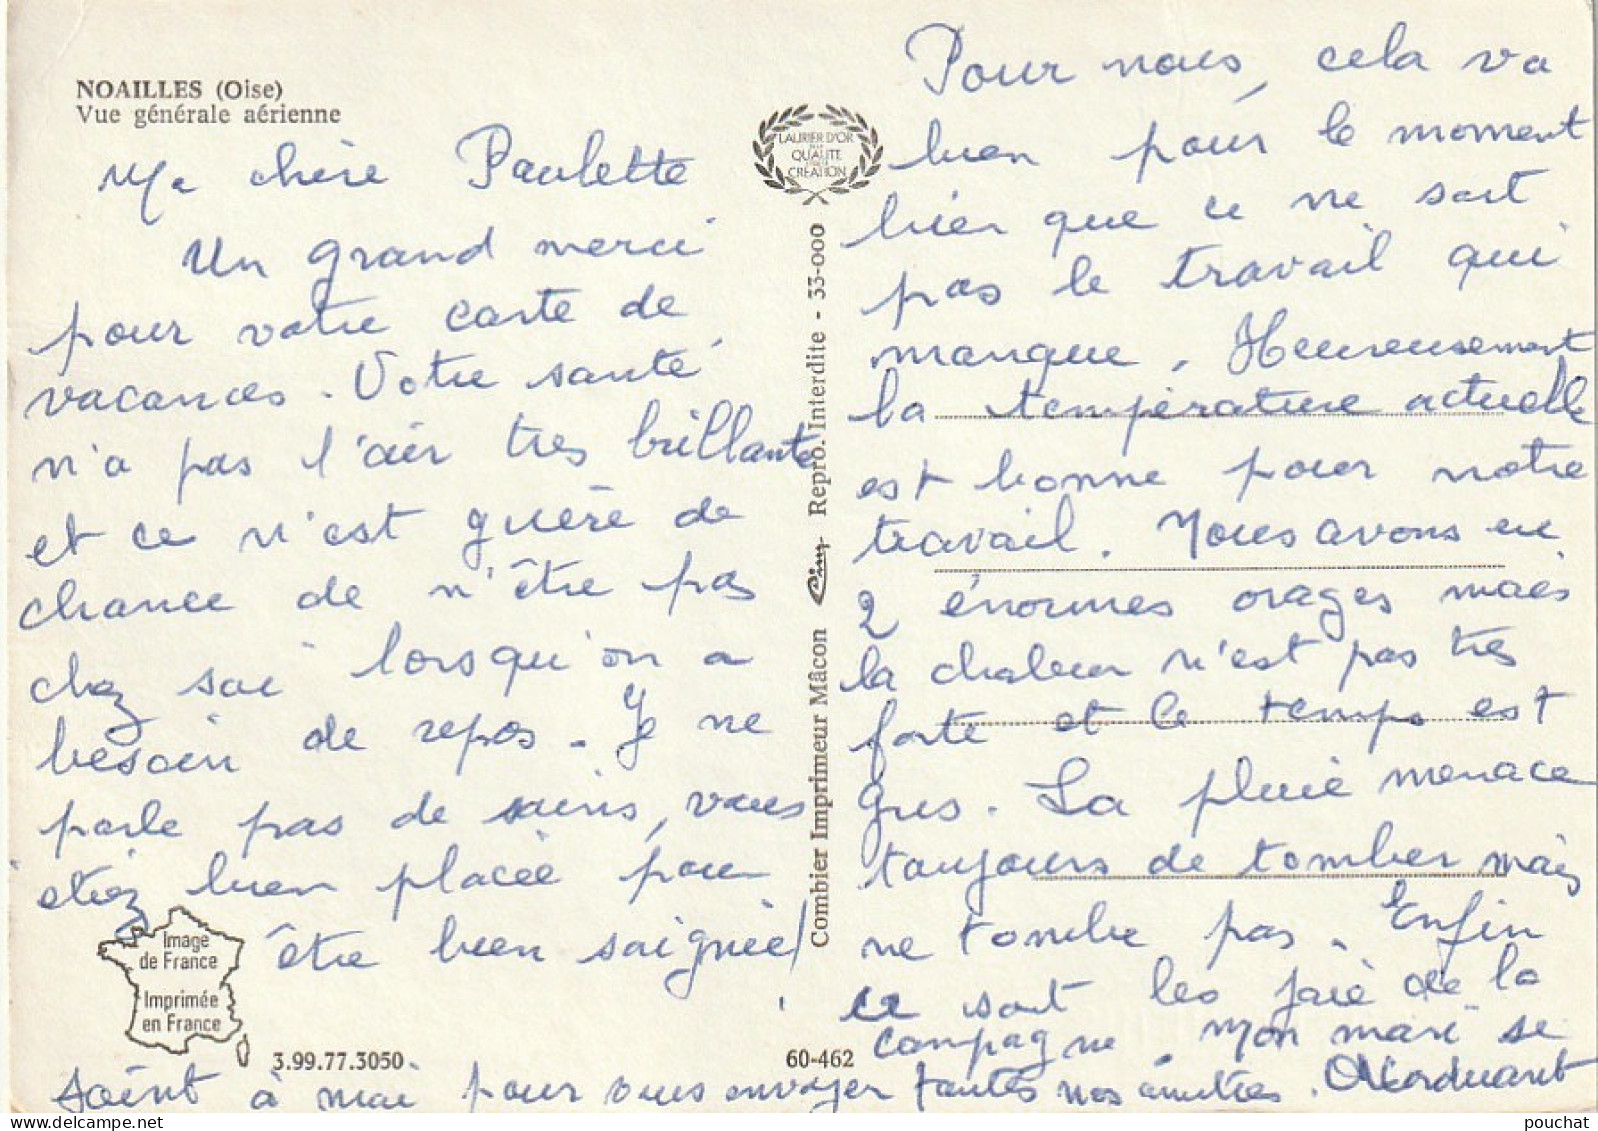 NOAILLES (Oise)
Vue générale aérienne
Ma chère Paulette
Un grand merci
pour votre carte de
vacances. Votre santé
n'a pas l'air très brillante
et ce n'est guère de
chance de n'être pas
chez soi lorsqu'on a
besoin de repos. Je ne
parle pas de soins, vous
étiez bien placée pour
être bien soignée!
Image
de France
Imprimée
en France
3.99.77.3050
60-462
LAURIER D'OR
DE LA
QUALITÉ
CRÉATION
Combier Imprimeur Mâcon Cim Repro. Interdite - 33-000
Pour nous, cela va
bien pour le moment
bien que ce ne soit
pas le travail qui
manque. Heureusement
la température actuelle
est bonne pour notre
travail. Nous avons eu
2 énormes orages mais
la chaleur n'est pas très
forte et le temps est
gris. La pluie menace
toujours de tomber mais
ne tombe pas. Enfin
ce sont les joie de la
campagne. Mon mari se
joint à moi pour vous envoyer toutes nos amitiés.
pouchat